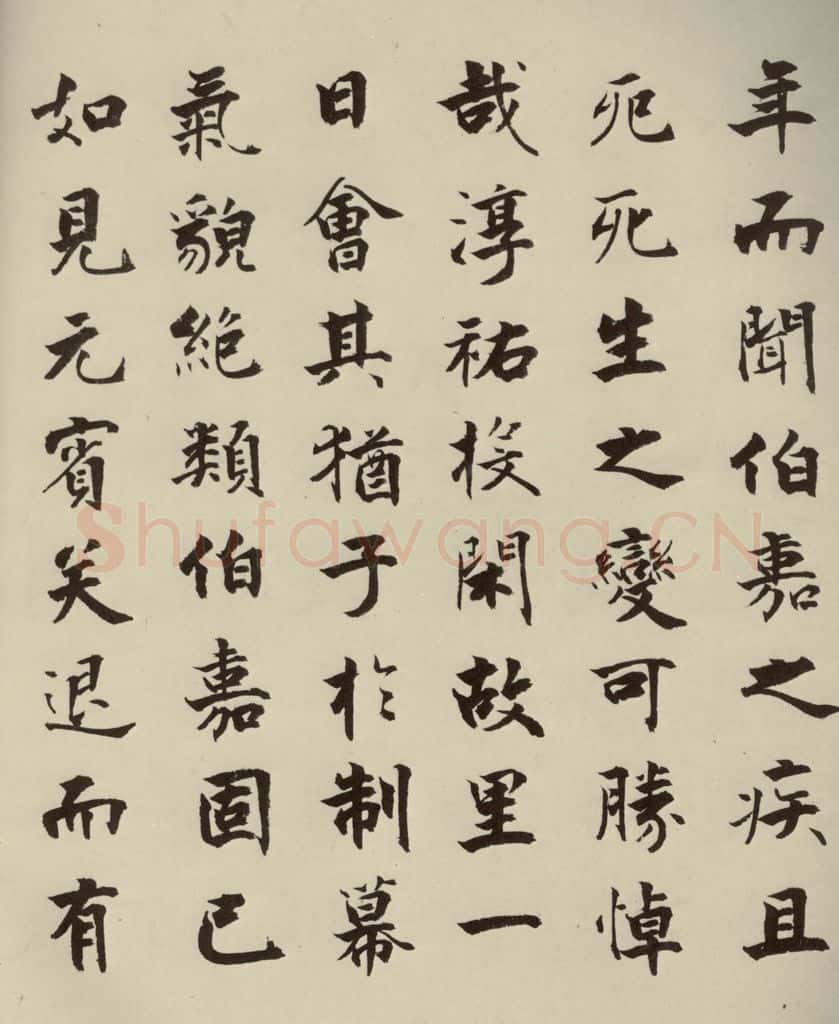 年而聞伯嘉之疾且
死死生之變可勝悼
哉淳祐投閑故里一
日會其猶子於制幕
氣貌絶類伯嘉固已
如見元賓矣退而有
Shufawang.CN